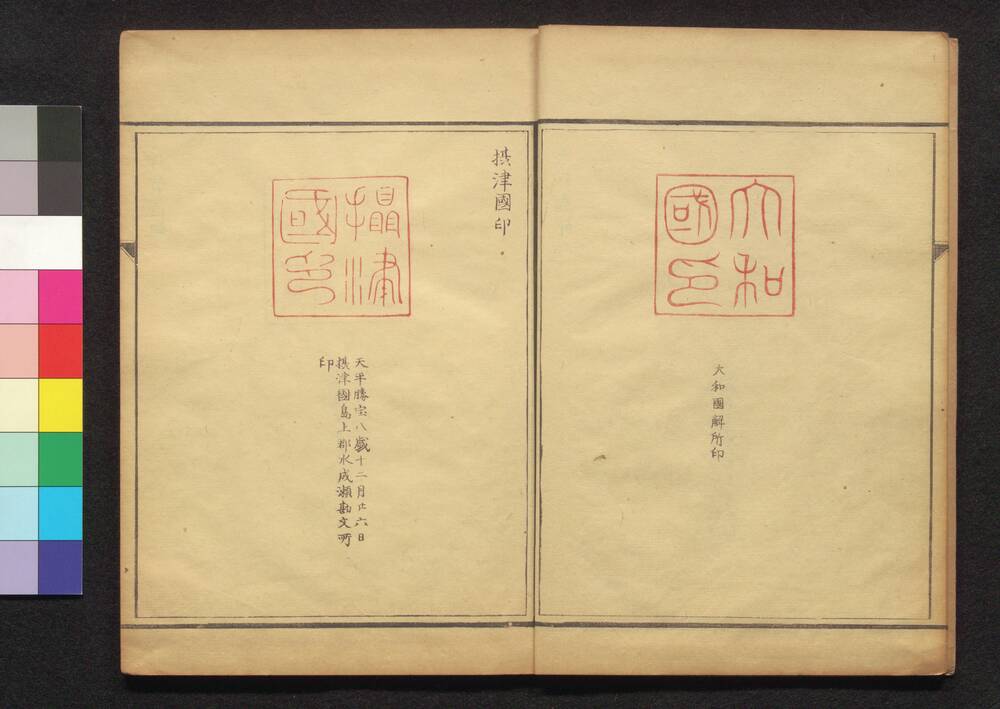 大和
國印
大和國解所印
摂津國印
攝津
國印
天平勝宝八歳十二月廿六日
摂津國島上郡水成瀬勘文所
印